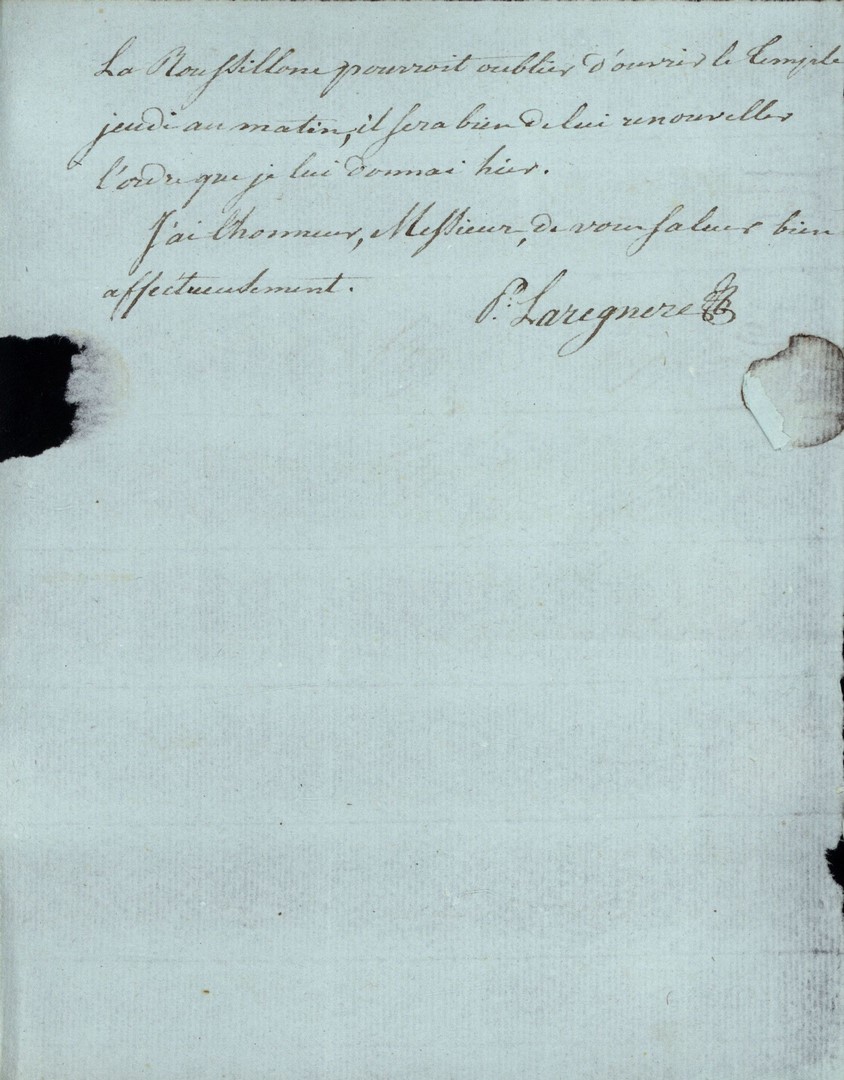 La Roussillone pourroit oublier d'ouvrir le temple
jeudi au matin, il sera bien de lui renouveller
l'ordre que je lui donnai hier.
J'ai l'honneur, Messieur, de vous saluer bien
affectueusement.
P. Laregnere